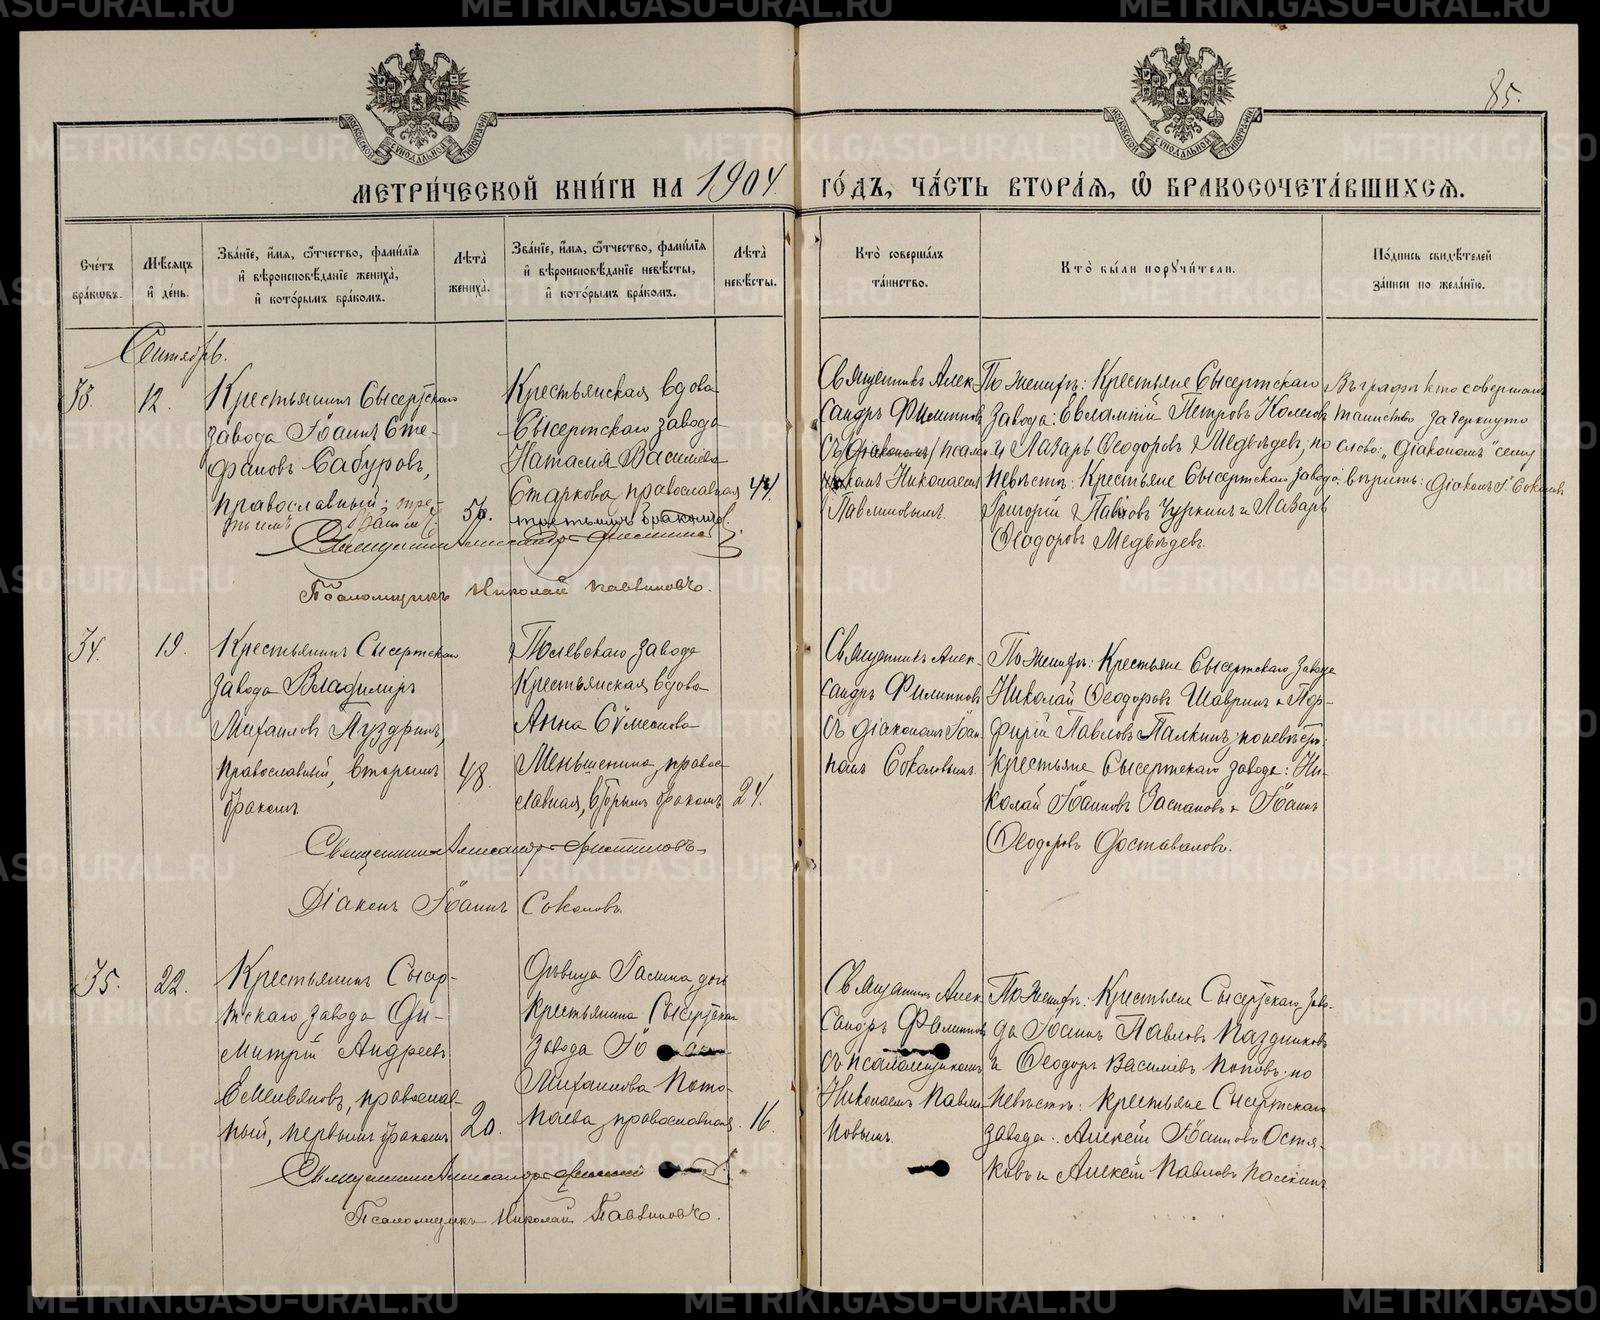 85.
МЕТРИ́ЧЕСКОЙ КНИ́ГИ НА 1904 ГО́ДЪ, ЧА́СТЬ ВТОРА́Ѧ, Ѡ҆ БРАКОСОЧЕТА́ВШИХСѦ.
Сче́тъ бра́ковъ.
Мѣ́сяцъ и҆ де́нь.
Зва́нїе, и҆́мя, ѻ҆́тчество, фами́лїѧ и҆ вѣроисповѣ́данїе жениха̀, и҆ кото́рымъ бра́комъ.
Лѣ́та жениха̀.
Зва́нїе, и҆́мя, ѻ҆́тчество, фами́лїѧ и҆ вѣроисповѣ́данїе невѣ́сты, и҆ кото́рымъ бра́комъ.
Лѣ́та невѣ́сты.
Кто̀ соверша́лъ та́инство.
Кто̀ бы́ли поручи́тели.
По́дпись свидѣ́телей за́писи по жела́нїю.
Сентябрь.
33.
12.
Крестьянинъ Сысертскаго
завода Іоаннъ Сте-
фановъ Сабуровъ,
православный; тре-
тьимъ бракомъ.
50.
Крестьянская вдова
Сысертскаго завода
Наталія Васильева
Старкова, православная
третьимъ бракомъ.
44.
Священникъ Алек-
сандръ Филипповъ
съ діакономъ псалом-
Николаемъ
Павлиновымъ.
По женихѣ: Крестьяне Сысертскаго
завода: Евлампій Петровъ
и Лазарь Ѳеодоровъ Медвѣдев, по
невѣстѣ: Крестьяне Сысертскаго завода:
Григорій Чуркинъ и Лазарь
Ѳеодоровъ Медвѣдевъ.
Въ графѣ кто совершалъ
таинство зачеркнуто
слово: „діакономъ" сему
вѣрить: діаконъ І. Соколовъ
Священникъ Александръ Филипповъ
Псаломщикъ Николай Павлиновъ.
34.
19.
Крестьянинъ Сысертскаго
завода Владиміръ
Михаиловъ Пуздринъ,
православный, вторымъ
бракомъ
48.
Полевскаго завода
Крестьянская вдова
Анна Сѵмеонова
Меньшенина, правос-
лавная, вторымъ бракомъ
24.
Священникъ Алек-
сандръ Филипповъ
съ діакономъ Іоан-
номъ Соколовымъ.
По женихѣ: Крестьяне Сысертскаго завода
Николай Ѳеодоровъ Шавринъ и Пор-
фирій Павловъ Палкинъ; по невѣстѣ:
крестьяне Сысертскаго завода: Ни-
колай Іоанновъ и Іоаннъ
Ѳеодоровъ Доставаловъ.
Священникъ Александръ Филипповъ
Діаконъ Іоаннъ Соколовъ.
35.
22.
Крестьянинъ Сысер-
тскаго завода Ди-
митрій Андреевъ
Емельяновъ, православ-
ный, первымъ бракомъ
20.
Дѣвица Галина, дочь
Крестьянина Сысертскаго
завода
Михаилова Пото-
паева, православная.
16.
Священникъ Алек-
сандръ Филипповъ
съ псаломщикомъ
Николаемъ Павли-
новымъ.
По женихѣ: Крестьяне Сысертскаго заво-
да Іоаннъ Павловъ Паздниковъ
и Ѳеодоръ Василіевъ Поповъ; по
невѣстѣ: крестьяне Сысертскаго
завода: Алексѣй Іоанновъ Остя-
ковъ и Алексѣй Павловъ Палкинъ.
Священникъ Александръ
Псаломщикъ Николай Павлиновъ.
METRIKI.GASO-URAL.RU